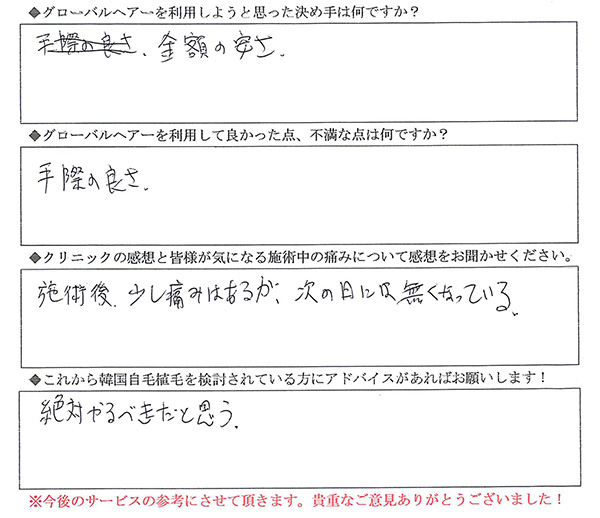 ◆グローバルヘアーを利用しようと思った決め手は何ですか？
手際の良さ、金額の安さ.
◆グローバルヘアーを利用して良かった点、不満な点は何ですか？
手際の良さ.
◆クリニックの感想と皆様が気になる施術中の痛みについて感想をお聞かせください。
施術後、少し痛みはあるが、次の日には無くなっている.
◆これから韓国自毛植毛を検討されている方にアドバイスがあればお願いします！
絶対やるべきだと思う.
※今後のサービスの参考にさせて頂きます。貴重なご意見ありがとうございました！